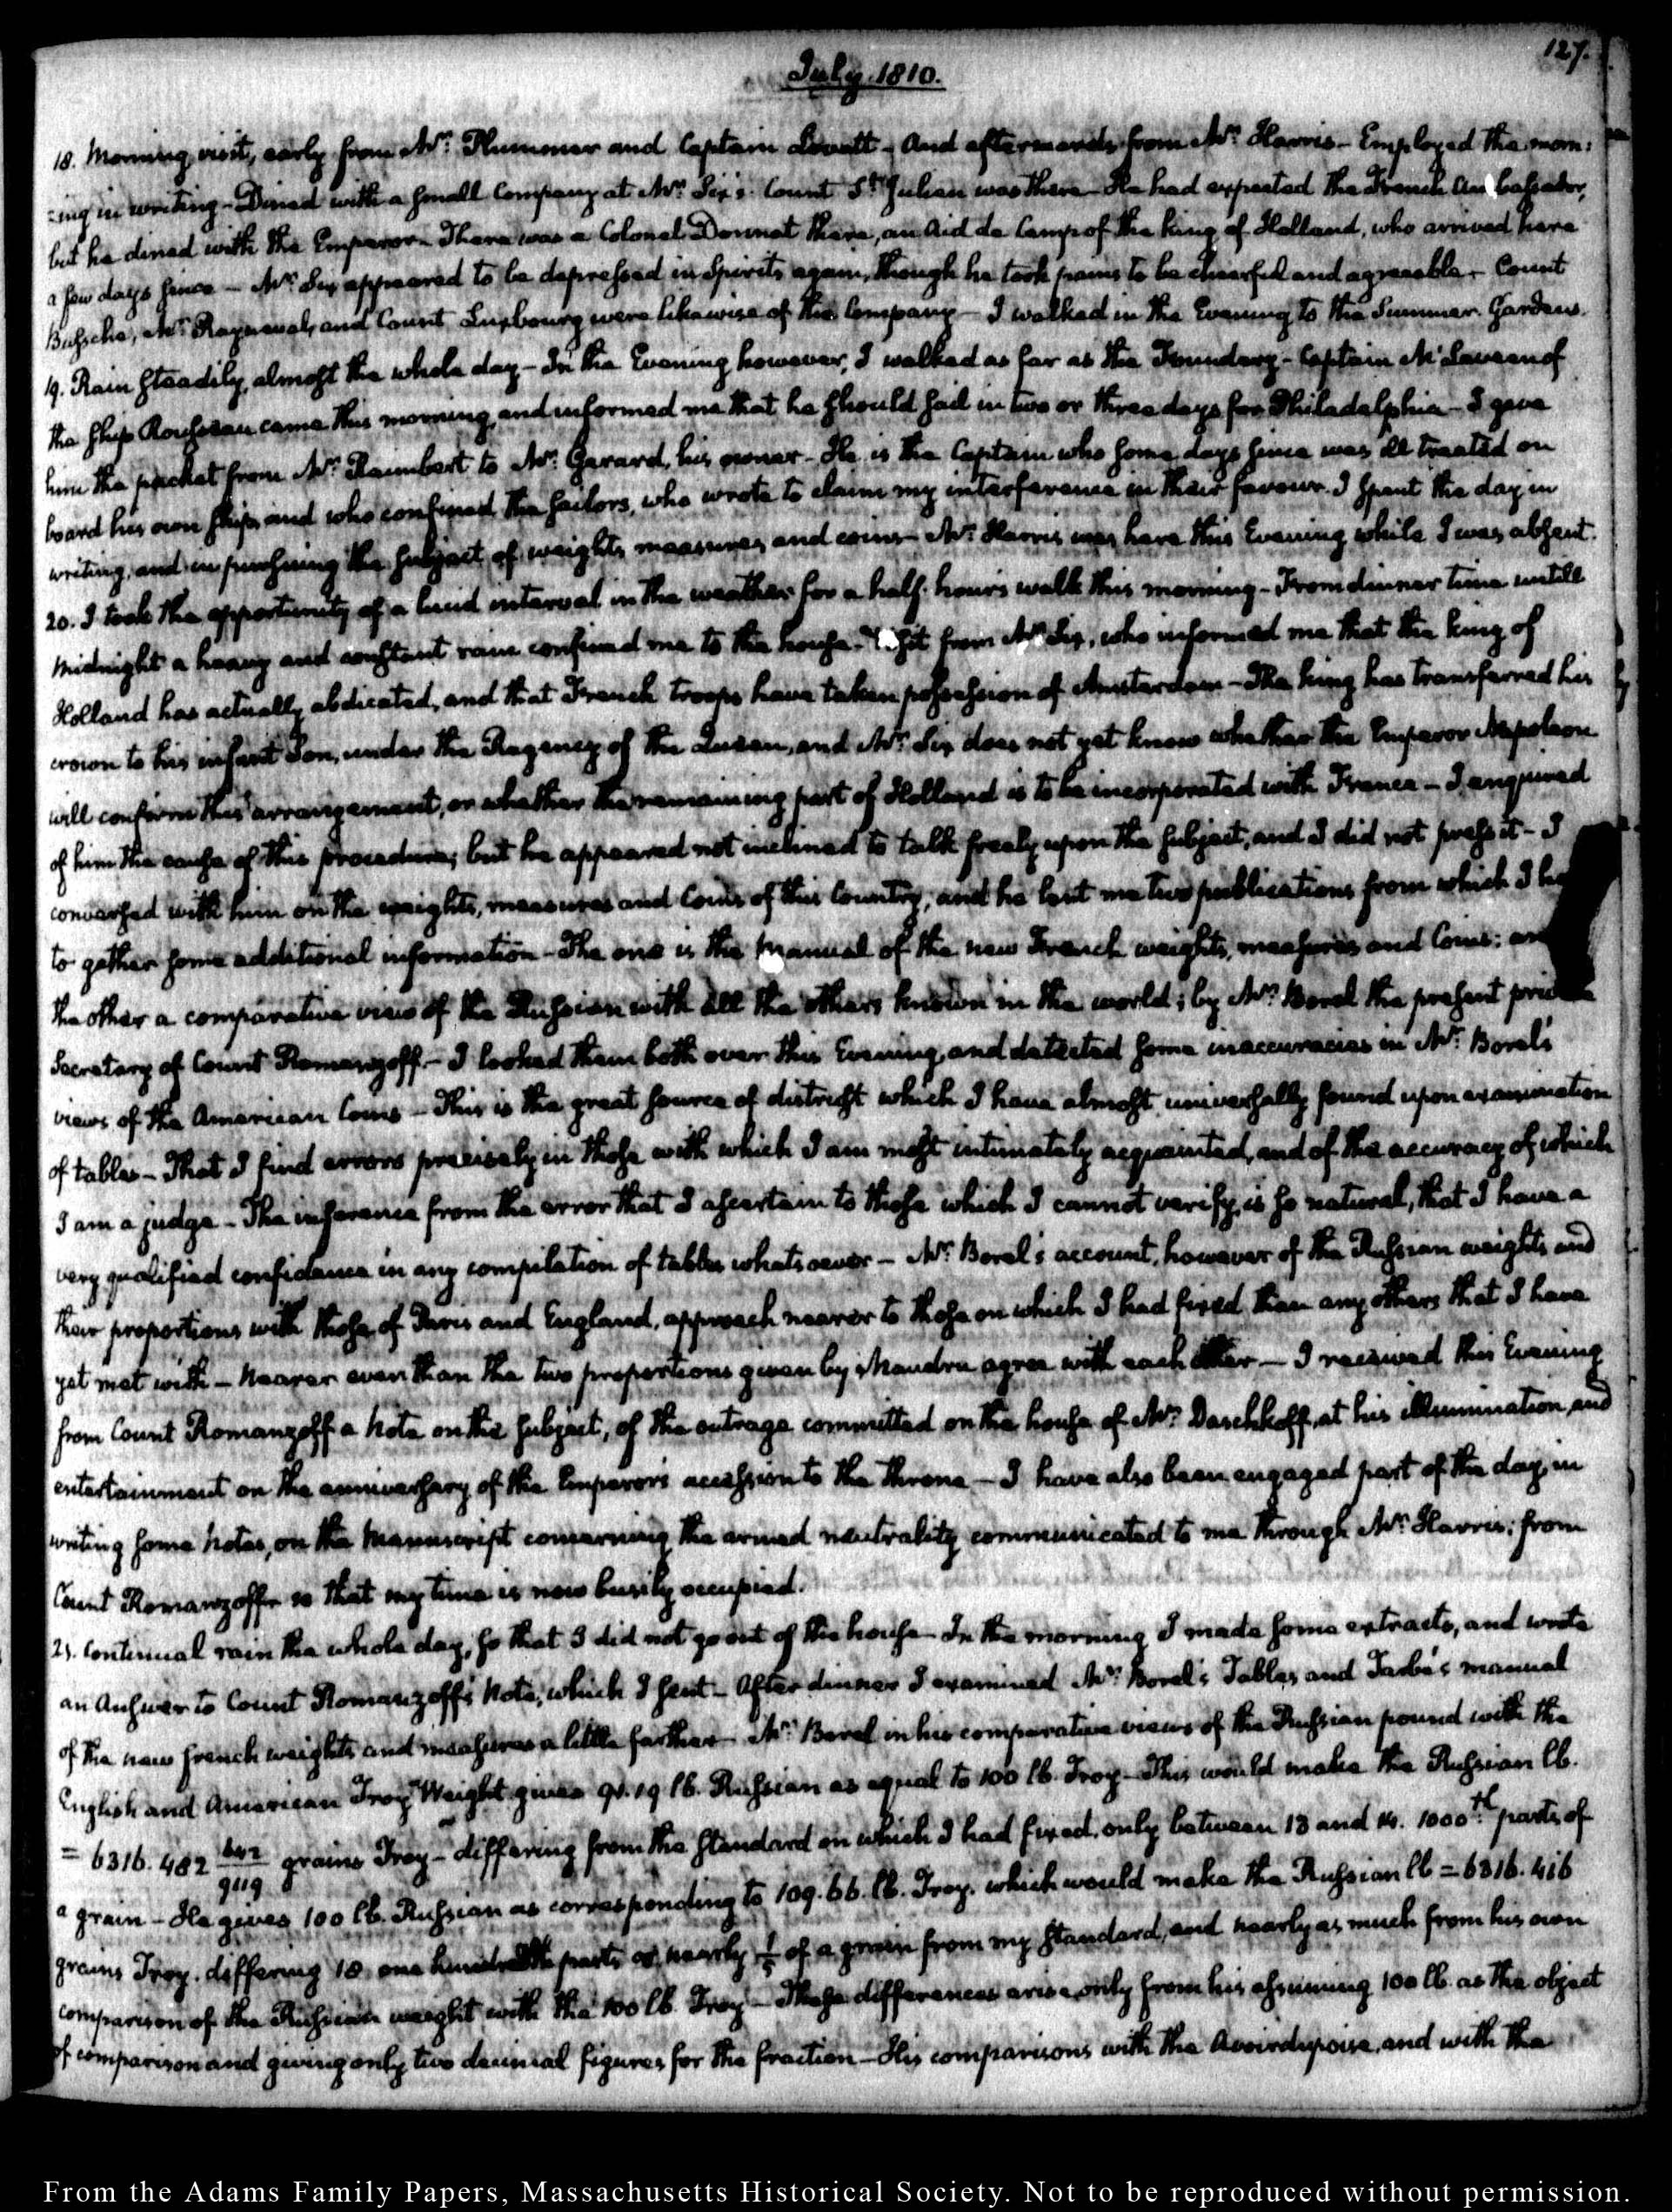 127.
July 1810.
18. Morning visit, early from Mr. Plummer and Captain Lovatt - And afterwards from Mr. Harris - Employed the morn:
:ing in writing - Dined with a small Company at Mr. Six's. Count St. Julien was there - He had expected the French Ambassador,
but he dined with the Emperor - There was a Colonel Donnat there, an Aid de Camp of the king of Holland, who arrived here
a few days since - Mr. Six appeared to be depressed in Spirits again, though he took pains to be chearful and agreeable - Count
Bussche, Mr. Rayneval, and Count Luxbourg were likewise of the Company - I walked in the Evening to the Summer Gardens.
19. Rain steadily, almost the whole day - In the Evening however, I walked as far as the Foundery - Captain of
the ship Rousseau came this morning, and informed me that he should sail in two or three days for Philadelphia - I gave
him the packet from Mr. Raimbert to Mr. Gerard, his owner - He is the Captain who some days since was ill treated on
board his own ship, and who confined the sailors, who wrote to claim my interference in their favour. I spent the day in
writing, and in pursuing the subject of weights, measures, and coins - Mr. Harris was here this Evening while I was absent.
20. I took the opportunity of a lucid interval in the weather for a half-hour's walk this morning - From dinner time untill
midnight a heavy and constant rain confined me to the house - Visit from Mr. Six, who informed me that the king of
Holland has actually abdicated, and that French troops have taken possession of Amsterdam - The king has transferred his
crown to his infant Son, under the Regency of the Queen, and Mr. Six does not yet know whether the Emperor Napoleon
will confirm this arrangement, or whether the remaining part of Holland is to be incorporated with France - I enquired
of him the cause of this procedure; but he appeared not inclined to talk freely upon the subject, and I did not press it - I
conversed with him on the weights, measures and Coins of this Country, and he lent me two publications from which I
to gather some additional information - The one is the Manual of the new French weights, measures and Coins; and
the other a comparative view of the Russian with all the others known in the world; by Mr. Borel the present private
Secretary of Count Romanzoff. - I looked them both over this Evening, and detected some inaccuracies in Mr. Borel's
views of the American Coins - This is the great source of distrust which I have almost universally found upon examination
of tables - That I find errors precisely in those with which I am most intimately acquainted, and of the accuracy of which
I am a judge - The inference from the error that I ascertain to those which I cannot verify, is so natural, that I have a
very qualified confidence in any compilation of tables whatsoever - Mr. Borel's account, however of the Russian weights and
their proportions with those of Paris and England, approach nearer to those on which I had fixed than any others that I have
yet met with - nearer even than the two proportions given by Maudru agree with each other - I received this Evening
from Count Romanzoff a Note on the subject, of the outrage committed on the house of Mr. Daschkoff, at his illumination, and
entertainment on the anniversary of the Emperor's accession to the throne - I have also been engaged part of the day, in
writing some Notes, on the Manuscript concerning the armed neutrality communicated to me through Mr. Harris; from
Count Romanzoff - so that my time is now busily occupied.
21. Continual rain the whole day, so that I did not go out of the house - In the morning I made some extracts, and wrote
an Answer to Count Romanzoff's Note, which I sent - After dinner I examined Mr. Borel's Tables, and Tarbé's manual
of the new french weights and measures a little farther - Mr. Borel in his comparative views of the Russian pound with the
English and American Troy Weight gives 91.19 lb. Russian as equal to 100 lb. Troy - This would make the Russian lb.
= 6316.482 642/9119 grains Troy - differing from the standard on which I had fixed, only between 13 and 14. 1000th. parts of
a grain - He gives 100 lb. Russian as corresponding to 109.66 lb. Troy, which would make the Russian lb = 6316.416
grains Troy, differing 18 one hundredth parts or nearly 1/5 of a grain from my standard, and nearly as much from his own
comparison of the Russian weight with the 100 lb. Troy - These differences arise only from his assuming 100 lb. as the object
of comparison and giving only two decimal figures for the fraction - His comparisons with the Avoirdupoise, and with the
From the Adams Family Papers, Massachusetts Historical Society. Not to be reproduced without permission.